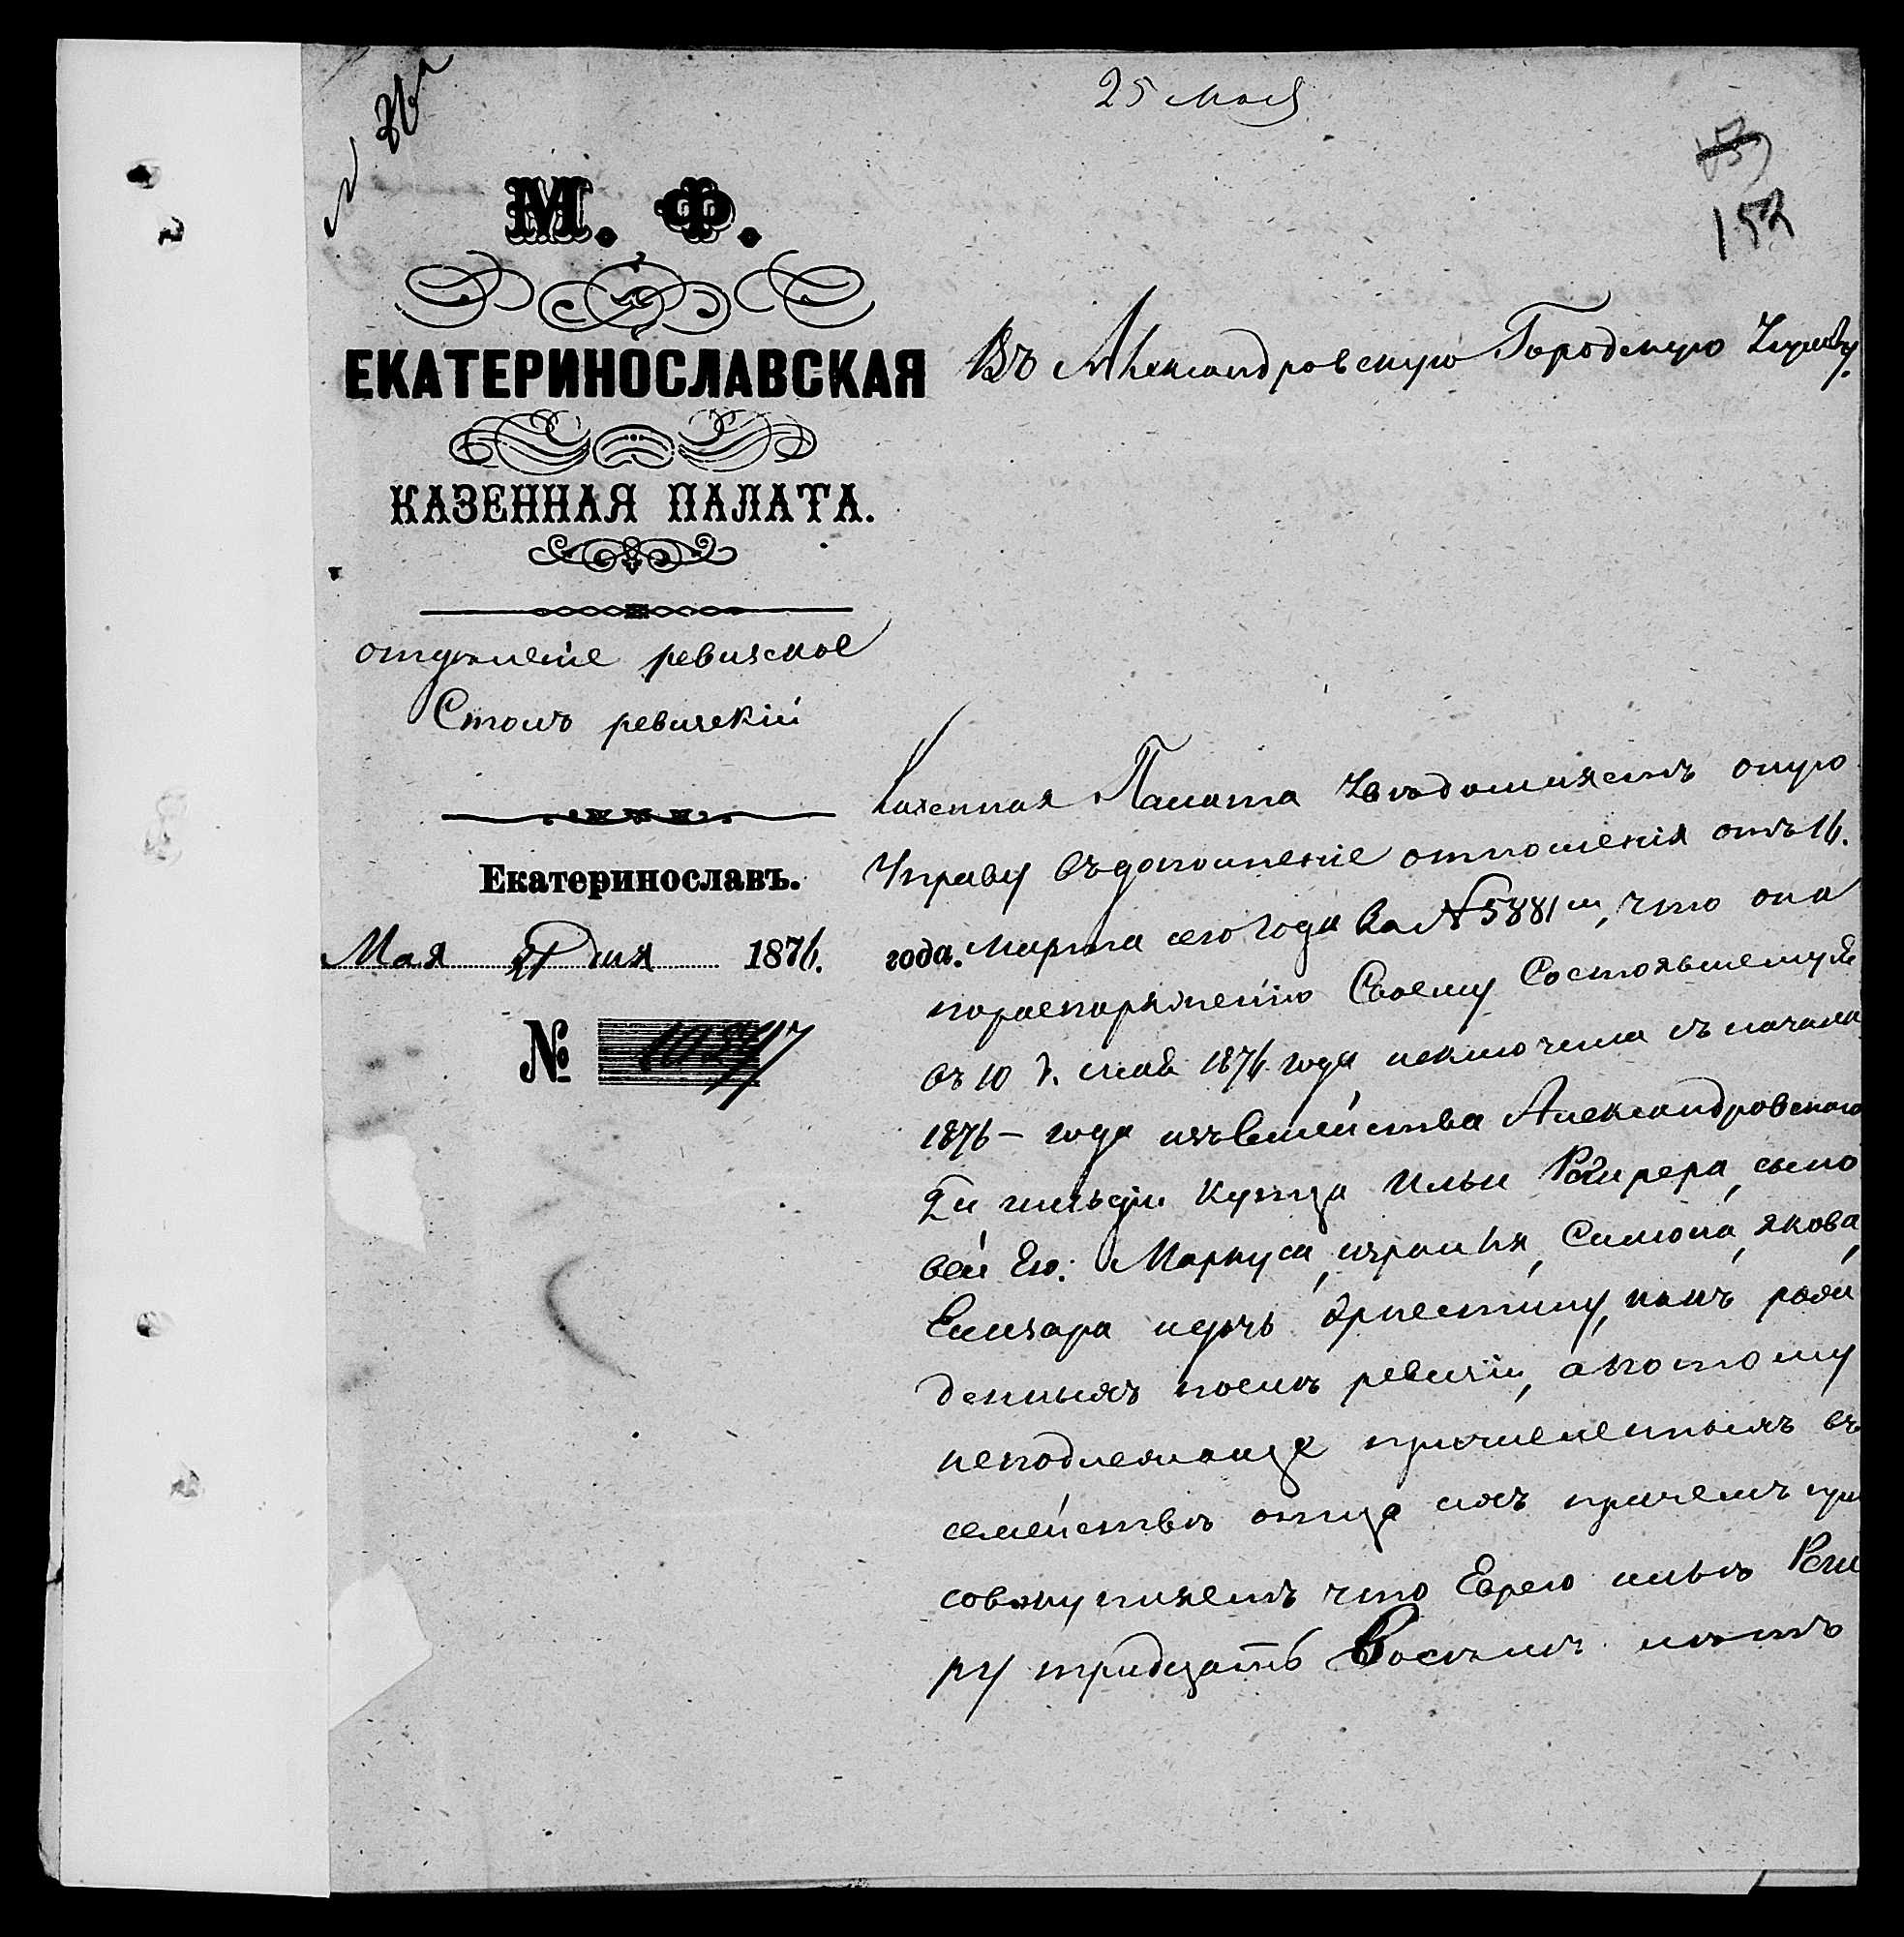 25 мая
152
М. Ф.
ЕКАТЕРИНОСЛАВСКАЯ
КАЗЕННАЯ ПАЛАТА.
отдѣленіе ревизское
Столъ ревизскій
Екатеринославъ.
Мая 21 дня 1876. года.
№
Въ Александровскую Городскую Управу.
Казенная Палата Увѣдомляетъ оную
Управу въ дополненіе отношенія отъ 16.
марта сего года за № 5881м, что она
по распоряженію Своему Состоявшемуся
въ 10 д. мая 1876 года исключила съ начала
1876 – года изъ Семейства Александровскаго
2й гильдіи Купца Ильи сыно
вей Его: Маркуса, израиля, Симона, якова,
Елизара и дочь Эрнестину, какъ рож
денныхъ послѣ ревизіи, а потому
неподлежаще причисленныхъ въ
семейство отца ихъ причемъ при
совокупляетъ что Еврею ильѣ
ру тридцать Восемь лѣтъ